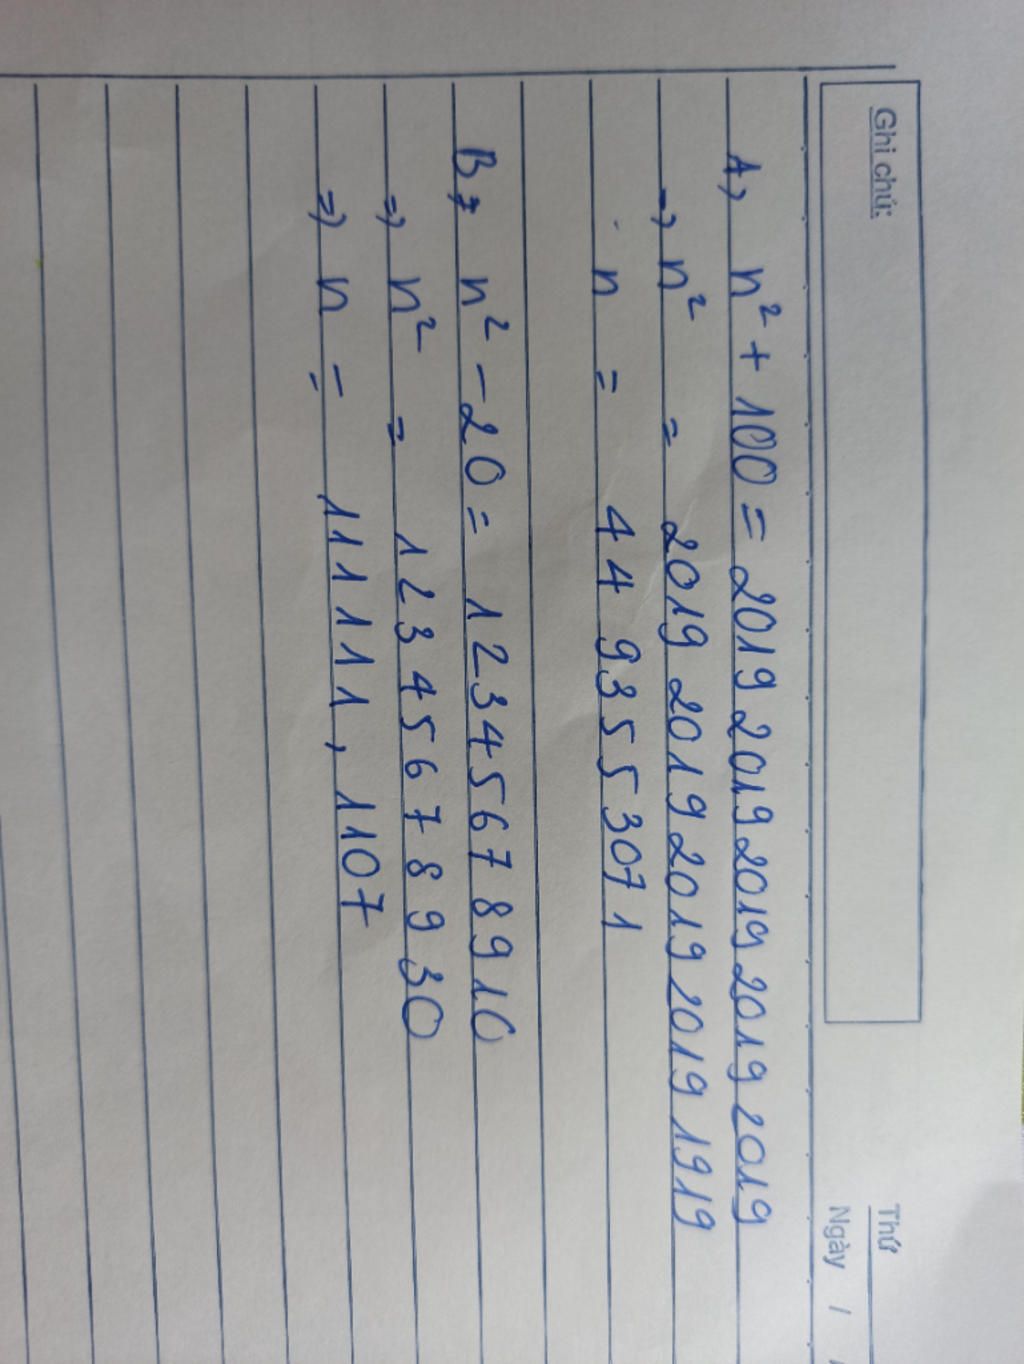 Thứ
Ngày /
Ghi chú:
A, n² + 100 = 2019 2019 2019 2019 2019
⇒ n² = 2019 2019 2019 2019 1919
n = 44 9355 3071
B, n² - 20 = 1234567 8910
⇒ n² = 1 2 3 4 5 6 7 8 9 30
⇒ n = 11111, 1107